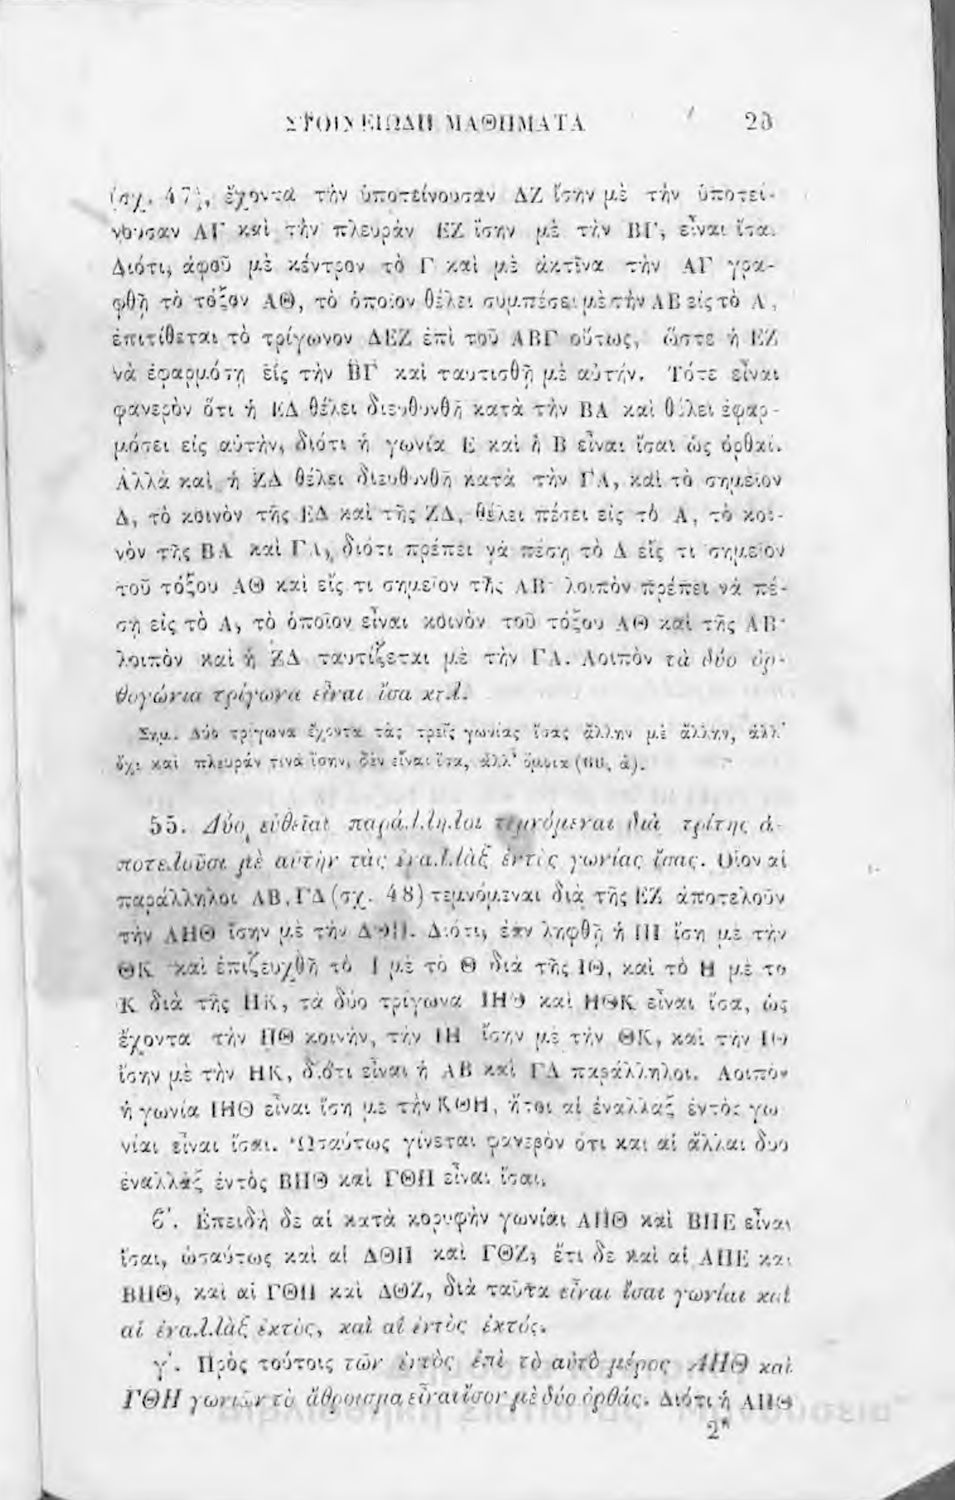 ΣΤΟΙΧΕΙΩΔΗ ΜΑΘΗΜΑΤΑ
(σχ. 47), ἔχοντα τὴν ὑποτείνουσαν ΔΖ ἴσην μὲ τὴν ὑποτεί-
νουσαν ΑΓ καὶ τὴν πλευρὰν ΕΖ ἴσην μὲ τὴν ΒΓ, εἶναι ἴσα.
Διότι, ἀφοῦ μὲ κέντρον τὸ Γ καὶ μὲ ἀκτῖνα τὴν ΑΓ γρα-
φθῇ τὸ τόξον ΑΘ, τὸ ὁποῖον θέλει συμπέσει μὲ τὴν ΑΒ εἰς τὸ Α,
ἐπιτίθεται τὸ τρίγωνον ΔΕΖ ἐπὶ τοῦ ΑΒΓ οὕτως, ὥστε ἡ ΕΖ
νὰ ἐφαρμόσῃ εἰς τὴν ΒΓ καὶ ταυτισθῇ μὲ αὐτήν. Τότε εἶναι
φανερὸν ὅτι ἡ ΕΔ θέλει διευθυνθῆ κατὰ τὴν ΒΑ καὶ θέλει ἐφαρ-
μόσει εἰς αὐτήν, διότι ἡ γωνία Ε καὶ ἡ Β εἶναι ἴσαι ὡς ὀρθαί.
Ἀλλὰ καὶ ἡ ΖΔ θέλει διευθυνθῆ κατὰ τὴν ΓΑ, καὶ τὸ σημεῖον
Δ, τὸ κοινὸν τῆς ΕΔ καὶ τῆς ΖΔ, θέλει πέσει εἰς τὸ Α, τὸ κοι-
νὸν τῆς ΒΑ καὶ ΓΑ, διότι πρέπει νὰ πέσῃ τὸ Δ εἴς τι σημεῖον
τοῦ τόξου ΑΘ καὶ εἴς τι σημεῖον τῆς ΑΒ· λοιπὸν πρέπει νὰ πέ-
σῃ εἰς τὸ Α, τὸ ὁποῖον εἶναι κοινὸν τοῦ τόξου ΑΘ καὶ τῆς ΑΒ·
λοιπὸν καὶ ἡ ΖΔ ταυτίζεται μὲ τὴν ΓΑ. Λοιπὸν τὰ δύο ὀρ-
θογώνια τρίγωνα εἶναι ἴσα κτλ.
Σημ. Δύο τρίγωνα ἔχοντα τὰς τρεῖς γωνίας ἴσας ἄλλην μὲ ἄλλην, ἀλλ'
ὄχι καὶ πλευράν τινα ἴσην, δὲν εἶναι ἴσα, ἀλλ' ὅμοια
55. Δύο εὐθεῖαι παράλληλοι τεμνόμεναι διὰ τρίτης ἀ-
ποτελοῦσι μὲ αὐτὴν τὰς ἐναλλὰξ ἐντὸς γωνίας ἴσας. Οἷον αἱ
παράλληλοι ΑΒ, ΓΔ (σχ. 48) τεμνόμεναι διὰ τῆς ΕΖ ἀποτελοῦν
τὴν ΑΗΘ ἴσην μὲ τὴν ΔΘΗ. Διότι, ἐὰν ληφθῇ ἡ ΗΙ ἴση μὲ τὴν
ΘΚ καὶ ἐπιζευχθῇ τὸ Ι μὲ τὸ Θ διὰ τῆς ΙΘ, καὶ τὸ Η μὲ το
Κ διὰ τῆς ΗΚ, τὰ δύο τρίγωνα ΙΗΘ καὶ ΗΘΚ εἶναι ἴσα, ὡς
ἔχοντα τὴν ΗΘ κοινήν, τὴν ΙΗ ἴσην μὲ τὴν ΘΚ, καὶ τὴν ΙΘ
ἴσην μὲ τὴν ΗΚ, διότι εἶναι ἡ ΑΒ καὶ ΓΔ παράλληλοι. Λοιπὸν
ἡ γωνία ΙΗΘ εἶναι ἴση με τὴν ΚΘΗ, ἤτοι αἱ ἐναλλὰξ ἐντὸς γω
νίαι εἶναι ἴσαι. Ὡσαύτως γίνεται φανερὸν ὅτι και αἱ ἄλλαι δυο
ἐναλλὰξ ἐντὸς ΒΗΘ καὶ ΓΘΗ εἶναι ἴσαι.
ϐ'. Ἐπειδὴ δε αἱ κατὰ κορυφὴν γωνίαι ΑΗΘ καὶ ΒΗΕ εἶναι
ἴσαι, ὡσαύτως καὶ αἱ ΔΘΗ καὶ ΓΘΖ, ἔτι δὲ καὶ αἱ ΑΗΕ και
ΒΗΘ, καὶ αἱ ΓΘΗ καὶ ΔΘΖ, διὰ ταῦτα εἶναι ἴσαι γωνίαι καὶ
αἱ ἐναλλὰξ ἐκτὸς, καὶ αἱ ἐντὸς ἐκτός.
γ'. Πρὸς τούτοις τῶν ἐντὸς ἐπὶ τὸ αὐτὸ μέρος ΑΗΘ καὶ
ΓΘΗ γωνιῶν τὸ ἄθροισμα εἶναι ἴσον μὲ δύο ὀρθάς. Διότι ἡ ΑΗΘ
2*